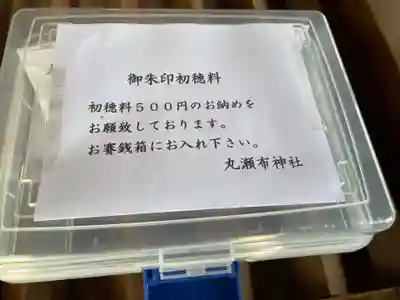 御朱印初穂料
初穂料５００円のお納めを
お願致しております。
お賽銭箱にお入れ下さい。
丸瀬布神社